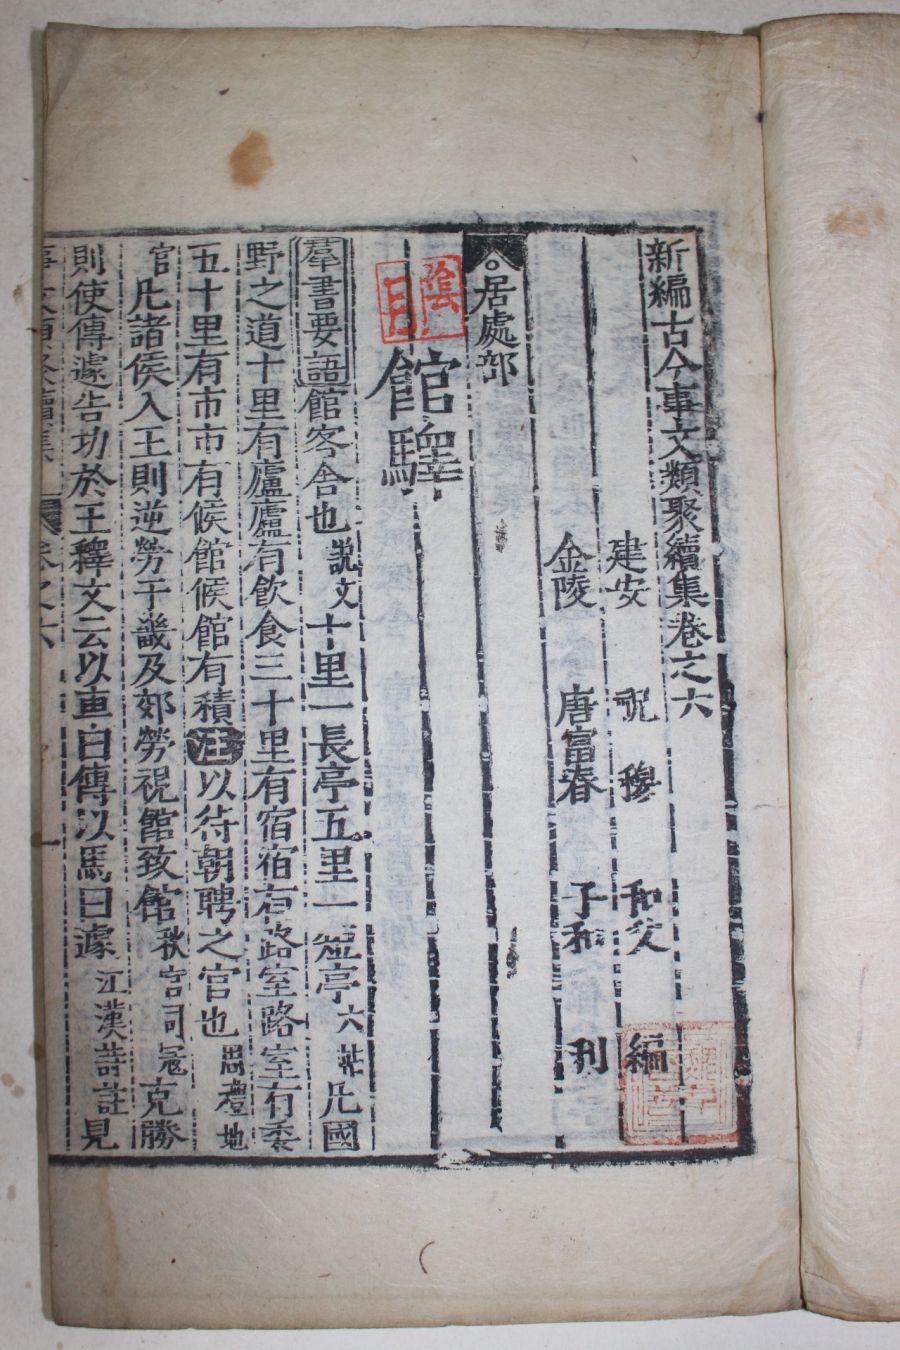 新編古今事文類聚續集卷之六
建安 祝 穆 和父 編
金陵 唐富春 子和 刊
居處部
館驛
羣書要語館客舍也說文十里一長亭五里一短亭六帖凡國
野之道十里有廬廬有飲食三十里有宿宿有路室路室有委
五十里有市市有候館候館有積注以待朝聘之官也周禮地
官凡諸侯入王則逆勞于畿及郊勞視館致館秋官司寇克勝
則使傳遽告功於王釋文云以車曰傳以馬曰遽江漢詩註見